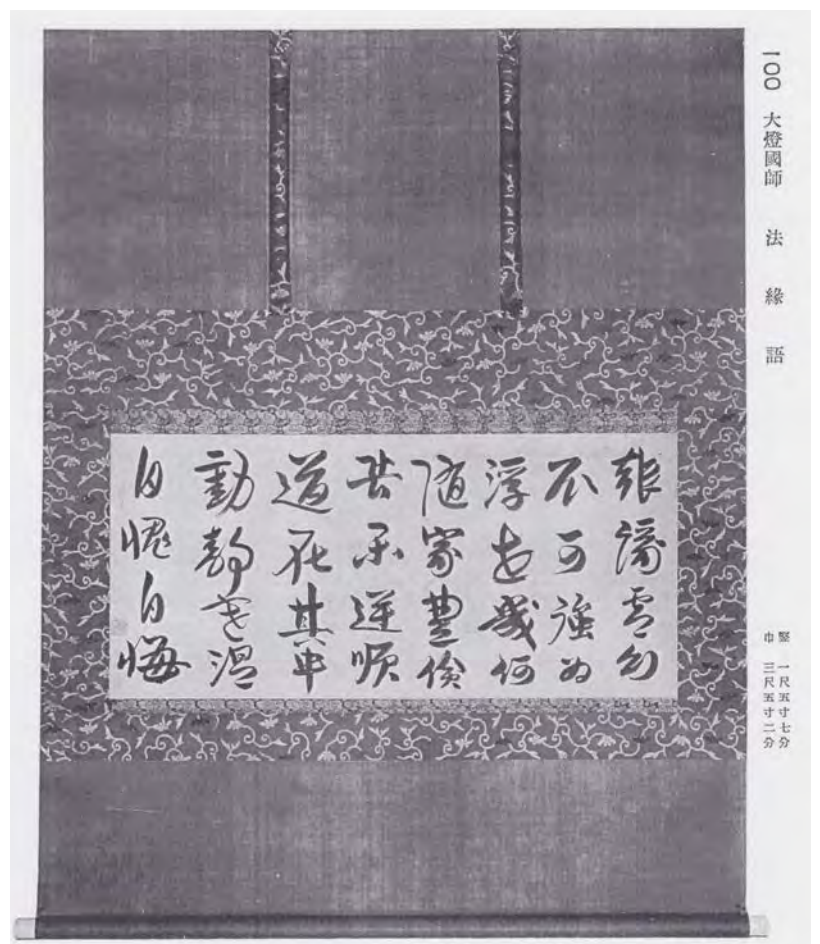 一〇〇 大燈國師 法緣語
竪 一尺五寸七分
巾 三尺五寸二分
報緣虚幻
不可強為
浮世幾何
随家豊儉
苦樂逆順
道在其中
動静寒温
自愧自悔